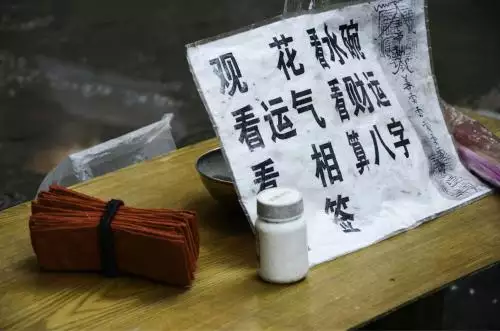 观花 看水碗
看运气 看财运
看相 算八字
签